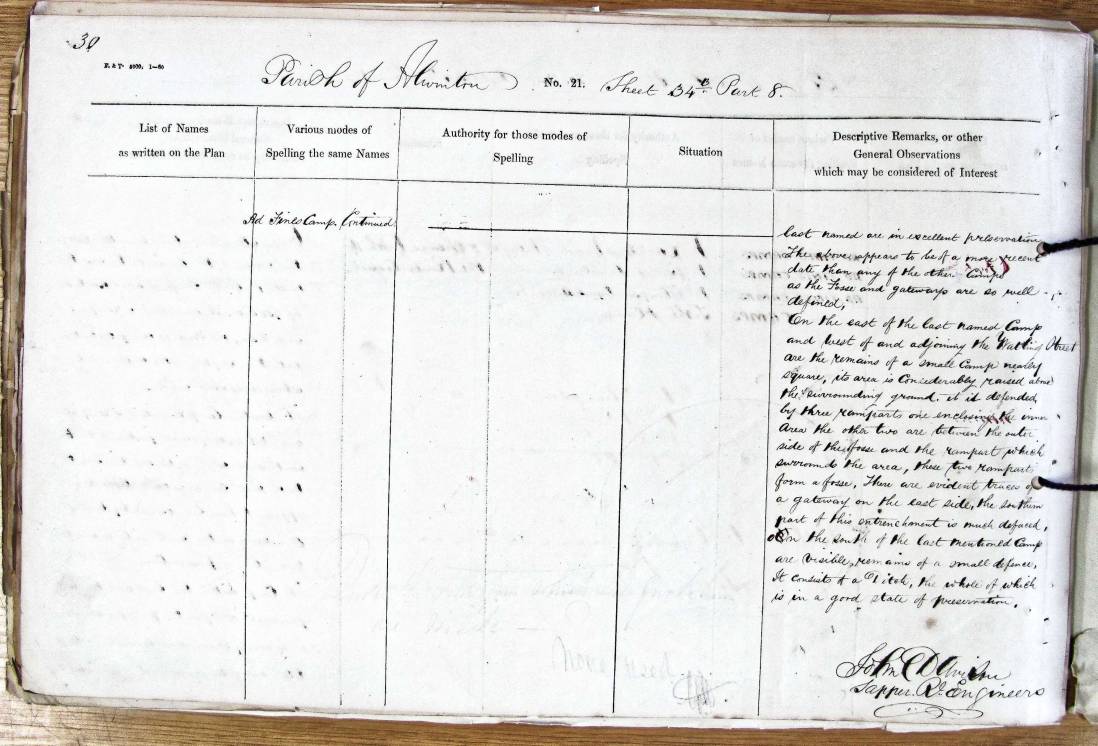 30
Parish of Alwinton No. 21. Sheet 34th Part 8.
List of Names
as written on the Plan
Various modes of
Spelling the same Names
Authority for those modes of
Spelling
Situation
Descriptive Remarks, or other
General Observations
which may be considered of Interest
Ad Fines Camp. Continued
last named are in excellent preservation
The above appears to be of a more recent
date than any of the other Camps
as the Fosse and gateways are so well
defined,
On the east of the last named Camp
and West of and adjoining the Watling Street
are the remains of a small Camp nearly
square, its area is Conciderably raised above
the surrounding ground. it is defended
by three ramparts one enclosing the inner
Area the other two are between the outer
side of the fosse and the rampart which
surrounds the area, these two rampart
form a fosse, There are evident traces of
a gateway on the east side, the southern
part of this entrenchment is much defaced,
On the south of the last mentioned Camp
are visible, remains of a small defence,
It consists of a Ditch, the whole of which
is in a good state of preservation.
John
Sapper Rl. Engineers